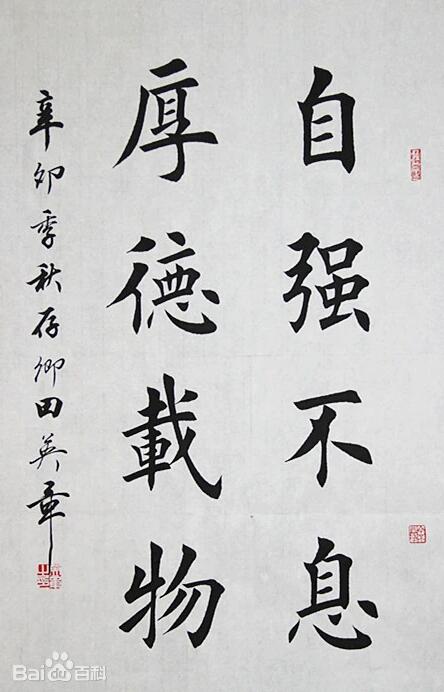 自强不息
厚德載物
辛卯季秋存卿田英章
Bai百科